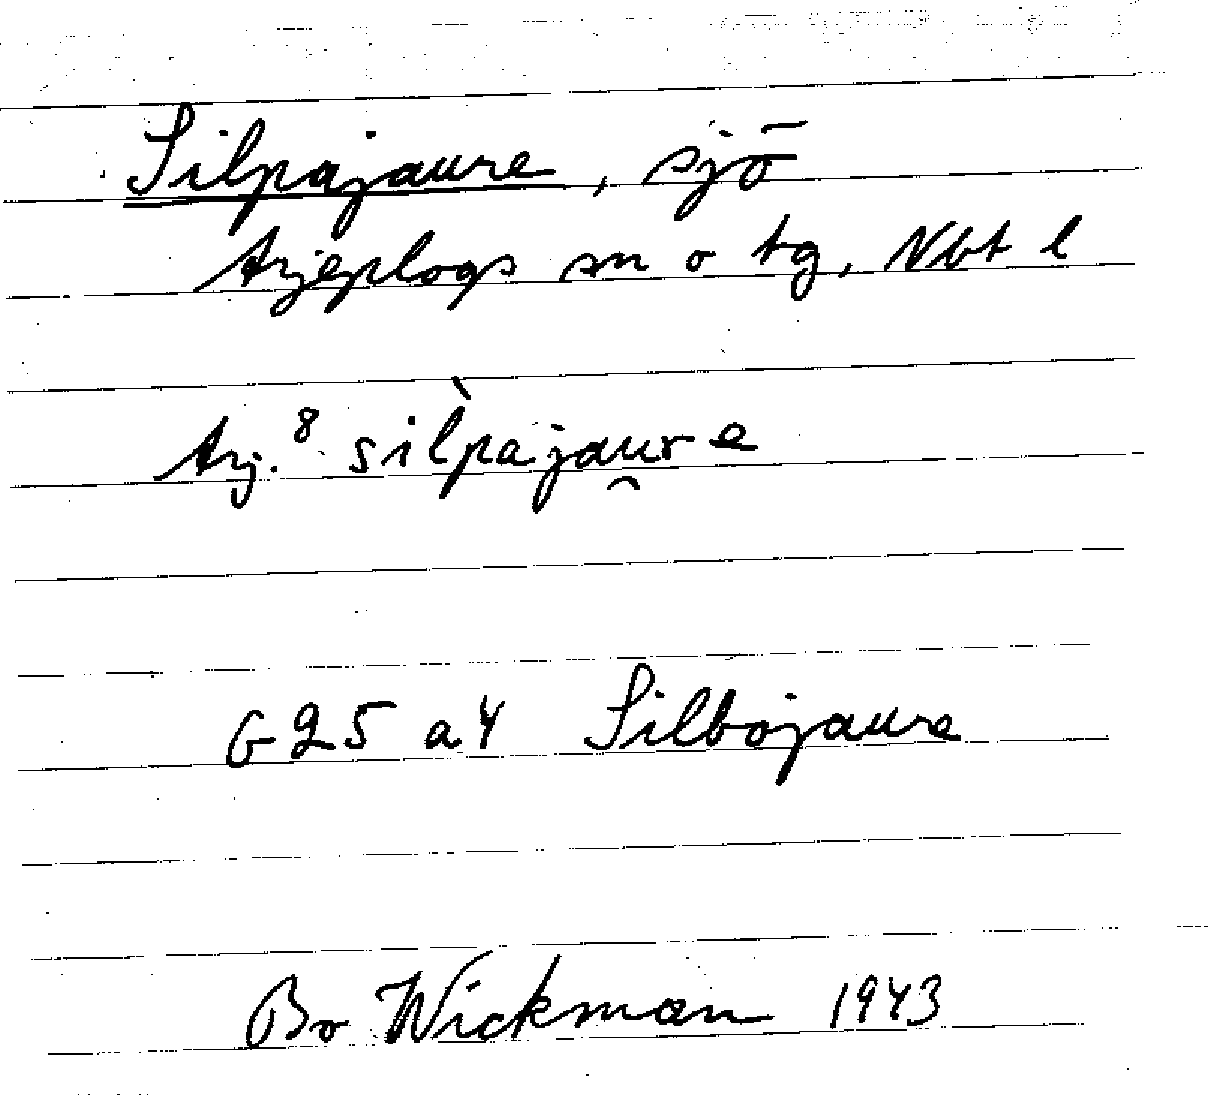 Silpajaure, sjö
Arjeplogs sn o tg, Nbt l
Arj.⁸ sìlpajau̯re
G 25 a 4 Silbojaure
Bo Wickman 1943